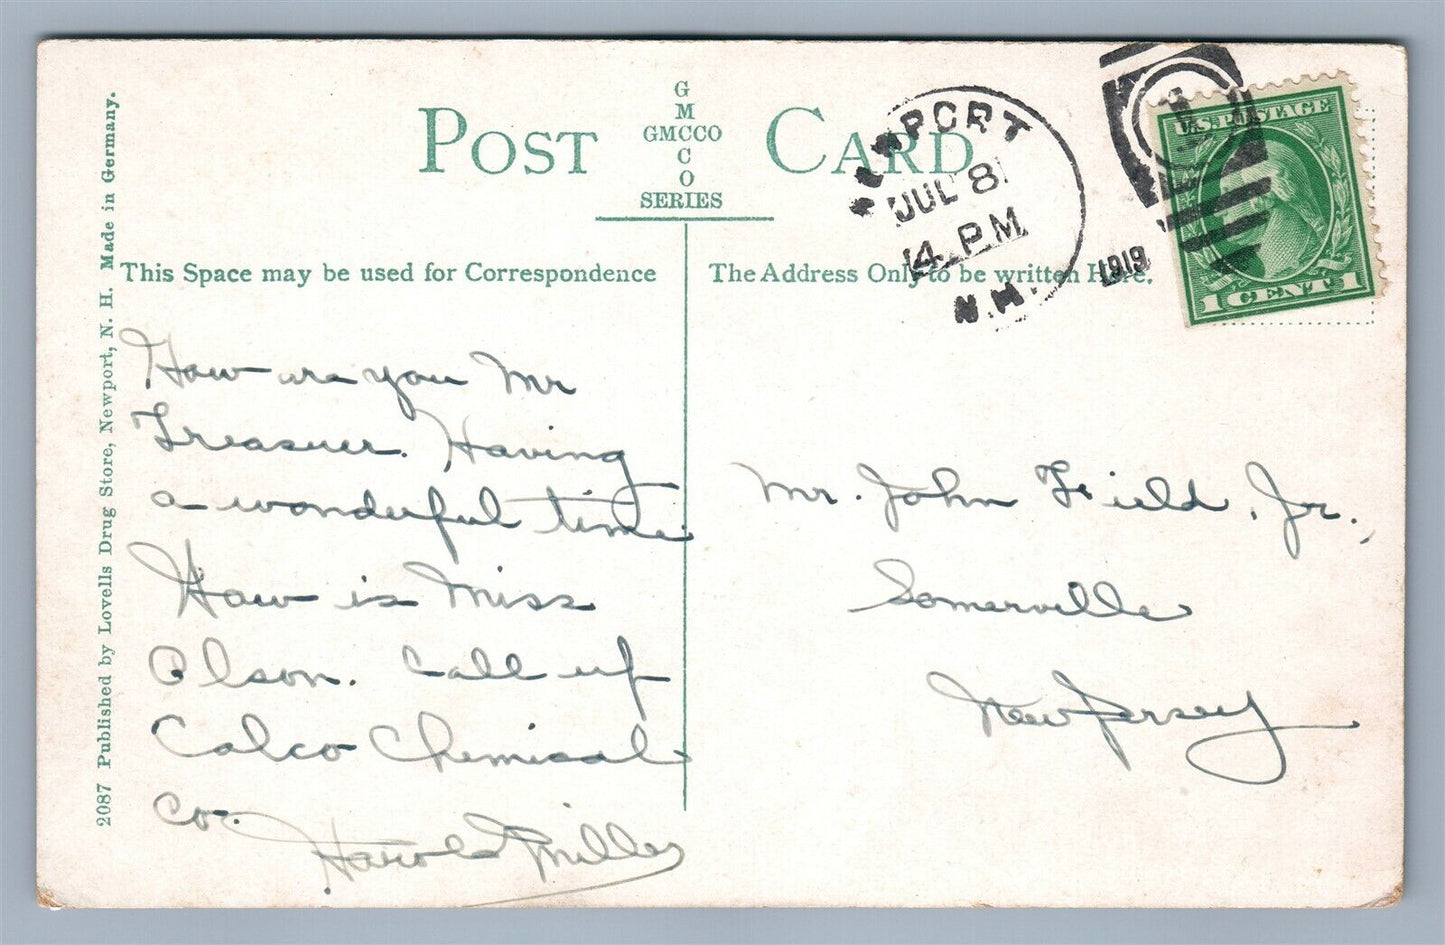 2087 Published by Lovells Drug Store, Newport, N. H. Made in Germany.
POST CARD
G
M
GMCCO
C
O
SERIES
This Space may be used for Correspondence
The Address Only to be written Here.
NEWPORT
JUL 8
4 PM
N.H.
1919
U.S. POSTAGE
1 CENT 1
How are you Mr
Treasurer. Having
a wonderful time
How is Miss
Olson. Call up
Calco Chemical
Co.
Harold Miller
Mr. John Field, Jr.,
Somerville
New Jersey